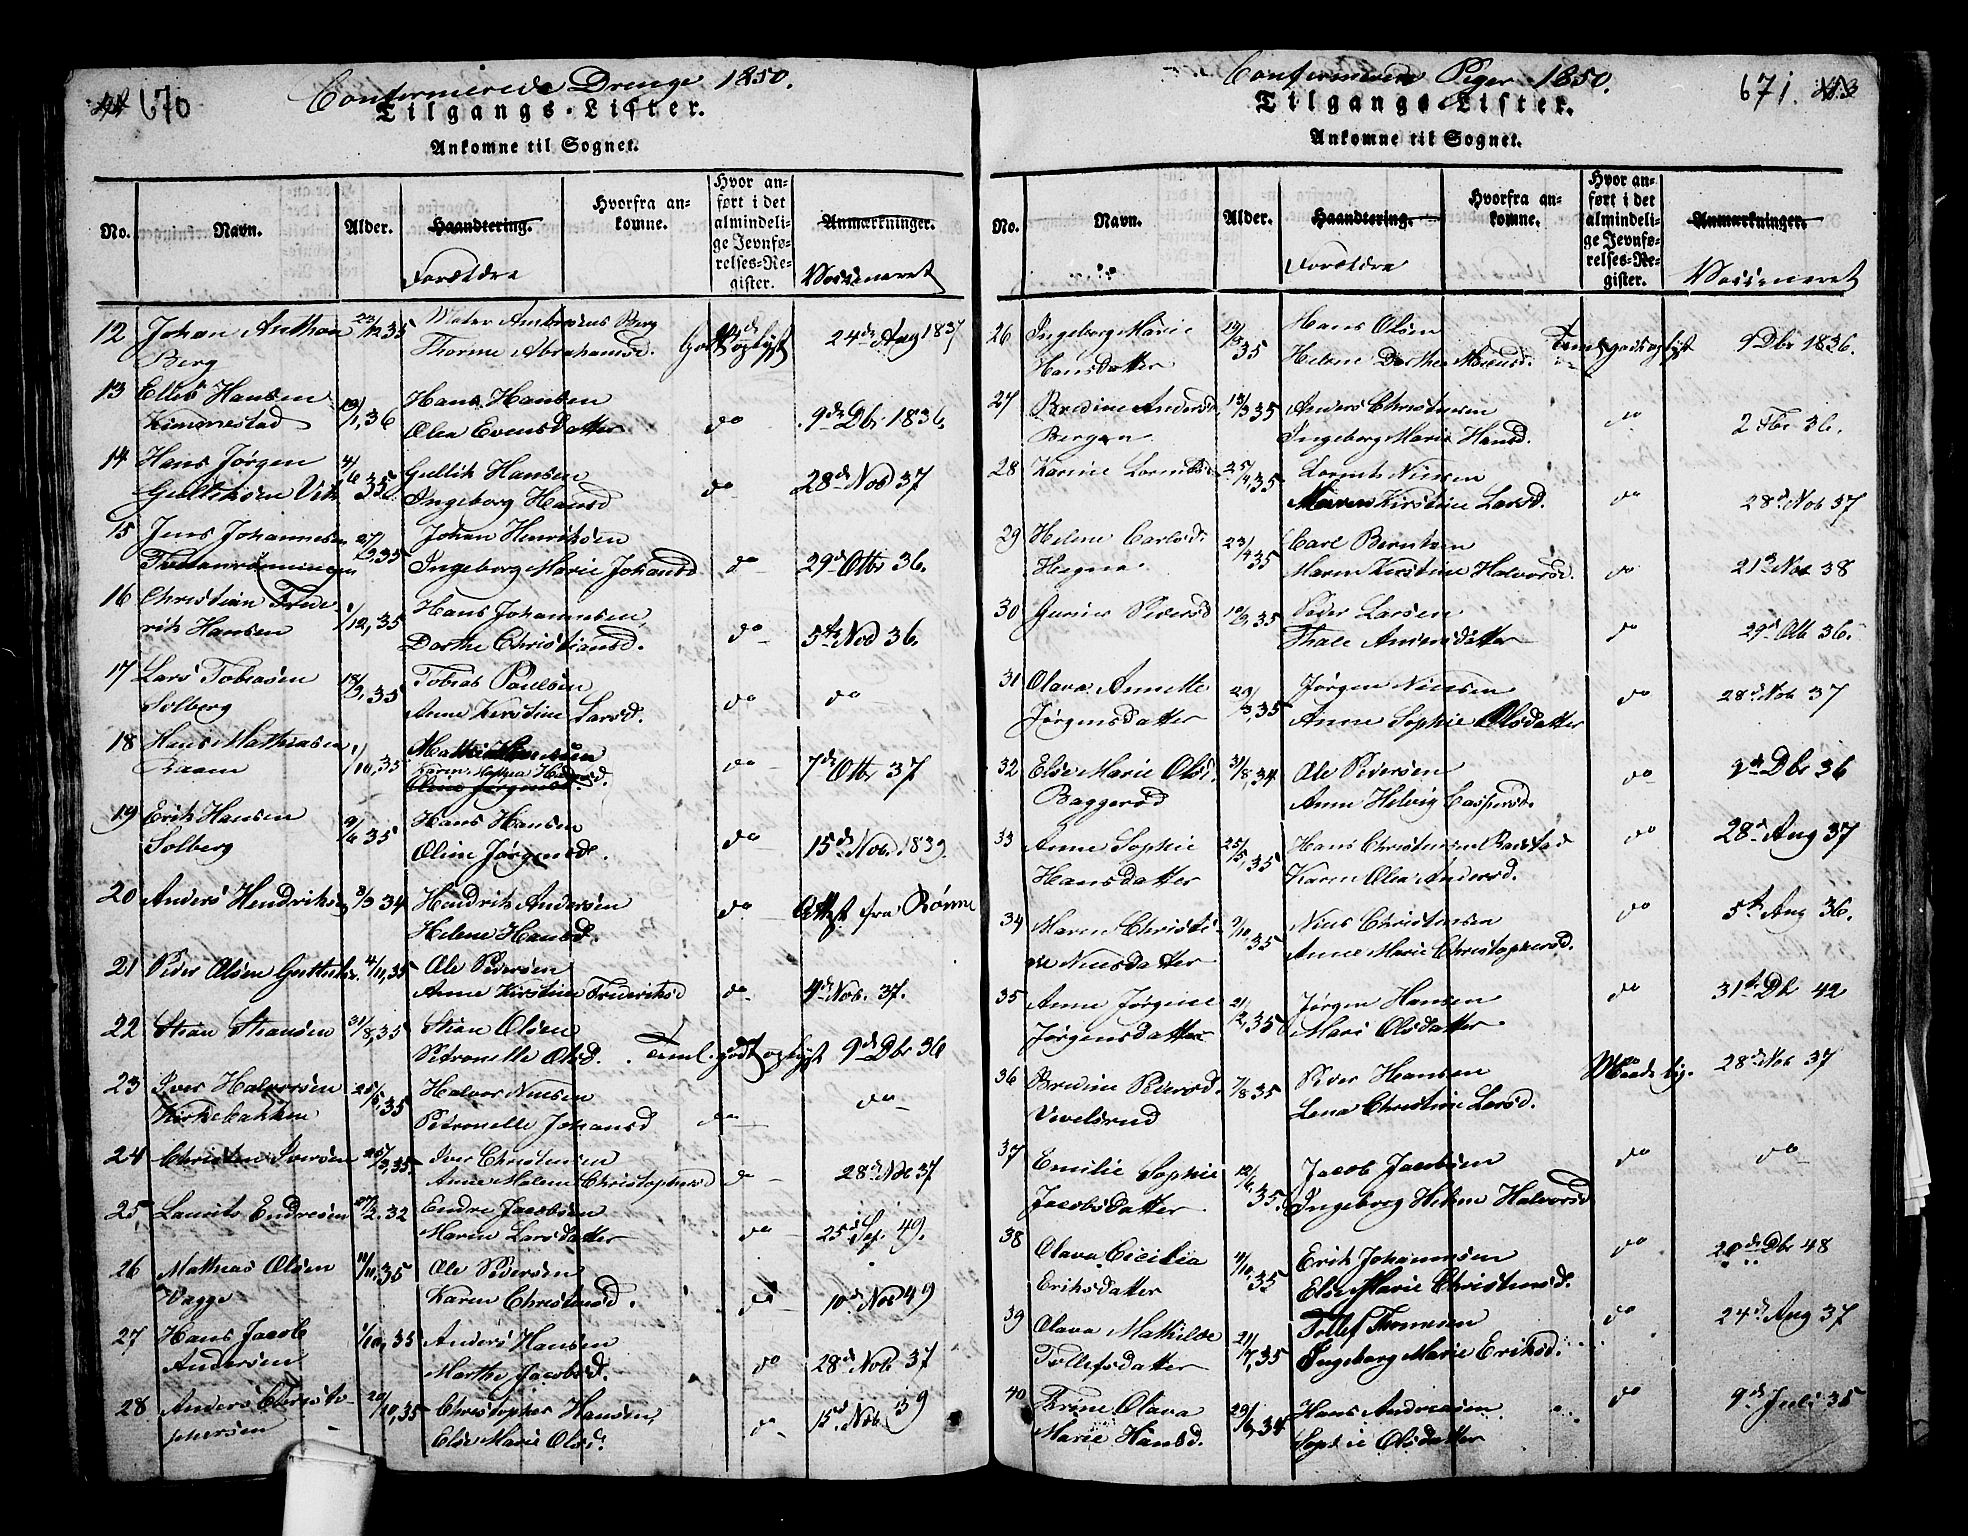 670
Confermerede Drenge 1850.
Tilgangs-Lister.
Ankomne til Sognet.
No. Navn. Alder. Haandtering. Forældre Hvorfra ankomne. Hvor anført i det almindelige Jevnførelses-Register. Anmærkninger. Vaccineret
12 Johan Anthon 35 Berg 24de Aug 1837
Berg Thorine Abrahamsd.
13 Elles Hansen 13/1, 36 Hans Hansen do 9de Dbr 1836.
Kimmestad Olea Evensdatter
14 Hans Jørgen 4/6 35 Gullik Hansen do 28de Nov 37
Gulliksen Vik Ingeborg Hansd
15 Jens Johannesen 35 Johan Henriksen do 29de Otbr 36.
Ingeborg Marie Johansd
16 Christian Frede 1/12, 35 Hans Johannesen, do 5te Nov 36.
rik Hansen Dorthe Christiansd.
17 Lars Tobiasen 35 Tobias Paulsen do do
Solberg Anne Kirstine Larsd.
18 Hans Mathiasen 1/10, 35 do 7de Otbr 37
Raaen Karen
Oline Jørgensd.
19 Erik Hansen 9/6 35 Hans Hansen do 15de Nov. 1839.
Solberg Oline Jørgensd.
20 Anders Hendriksen 3/3 34 Hendrik Andersen do Attest fra Rønne
Helene Hansd.
21 Peder Olsen 4/11, 35 Ole Pedersen do 4de Nov. 37.
Anne Kirstine Frederiksd
22 Stian Stiansen 31/8, 35 Stian Olsen Teml. godt oplyst 9de Dbr 36
Petronelle Olsd.
23 Iver Halvorsen 25/5, 35 Halvor Nielsen do do
Kirkebakken Petronelle Johansd
24 Christen Iversen 35 Iver Christensen do 28de Nov 37
Anne Malene Christophersd
25 Laurits Endresen 27/2, 32 Endre Jacobsen do 25de Sep. 49.
Maren Larsdatter
26 Mathias Olsen 11/11, 35 Ole Pedersen do 10de Nov 49
Vagge Karen Christensd.
27 Hans Jacob 1/10, 35 Anders Hansen do 28de Nov 37
Andersen Marthe Jacobsd.
28 Anders Christo- 20/10, 35 Christopher Hansen, do 15d Nov 39
phersen Else Marie Olsd.
671.
Confermerede Piger 1850.
Tilgangs-Lister.
Ankomne til Sognet.
No. Navn. Alder. Haandtering. Forældre Hvorfra ankomne. Hvor anført i det almindelige Jevnførelses-Register. Anmærkninger. Vaccineret
26 Ingeborg Marie 35 Hans Olsen Teml. godt oplyst 9 Dbr 1836.
Hansdatter Helene Dorthea
27 Bredine Andersd. 13/3 35 Anders Christensen do 2 Fbr 36.
Bergan Ingeborg Marie Hansd.
28 Karine Lorentsd. 25/4, 35 Lorents Nielsen do 28de Nov 37
Maren Kirstine Larsd.
29 Helene Carlsd. 23/4 35 Carl Berntsen do 21de Nov 38
Haugne Maren Kirstine Halvorsd.
30 Gurine Pedersd 10/3, 35 Peder Larsen do 29de Otb 36.
Thale Andersdatter
31 Olava Annette 29/3, 35 Jørgen Nielsen do 28de Nov 37
Jørgensdatter Anne Sophie Olsdatter
32 Else Marie Olsd. 31/8, 34 Ole Pedersen do Dbr 36
Baggerød Anne Helvig Caspersd.
33 Anne Sophie 25/5, 35 Hans Christensen Rastad do 28de Aug 37
Hansdatter Karen Olea Andersd.
34 Maren Christi- 9/10, 35 Niels Christensen do 5te Aug 36.
ne Nielsdatter Anne Marie Christophersd.
35 Anne Jørgine 21/2, 35 Jørgen Hansen do 31te Db 42
Jørgensdatter Mari Olsdatter
36 Bredine Pedersd. 7/8 35 Peder Hansen Maadelig. 28de Nov 37
Vivelsrud Lena Christine Larsd.
37 Emilie Sophie 12/6, 35 Jacob Jacobsen do do
Jacobsdatter Ingeborg Helene Halvorsd
38 Olava Cicilia 11/10, 35 Erik Johannesen do 20de Dbr 48
Eriksdatter Else Marie Christensd.
39 Olava Mathilde 21/7, 35 Tollef Thomesen do 24de Aug 37
Tollefsdatter Ingeborg Marie Eriksd.
40 Trine Olava 29/6, 34 Hans Andreasen do 9de Juli 35
Marie Hansd. Sophie Olsdatter